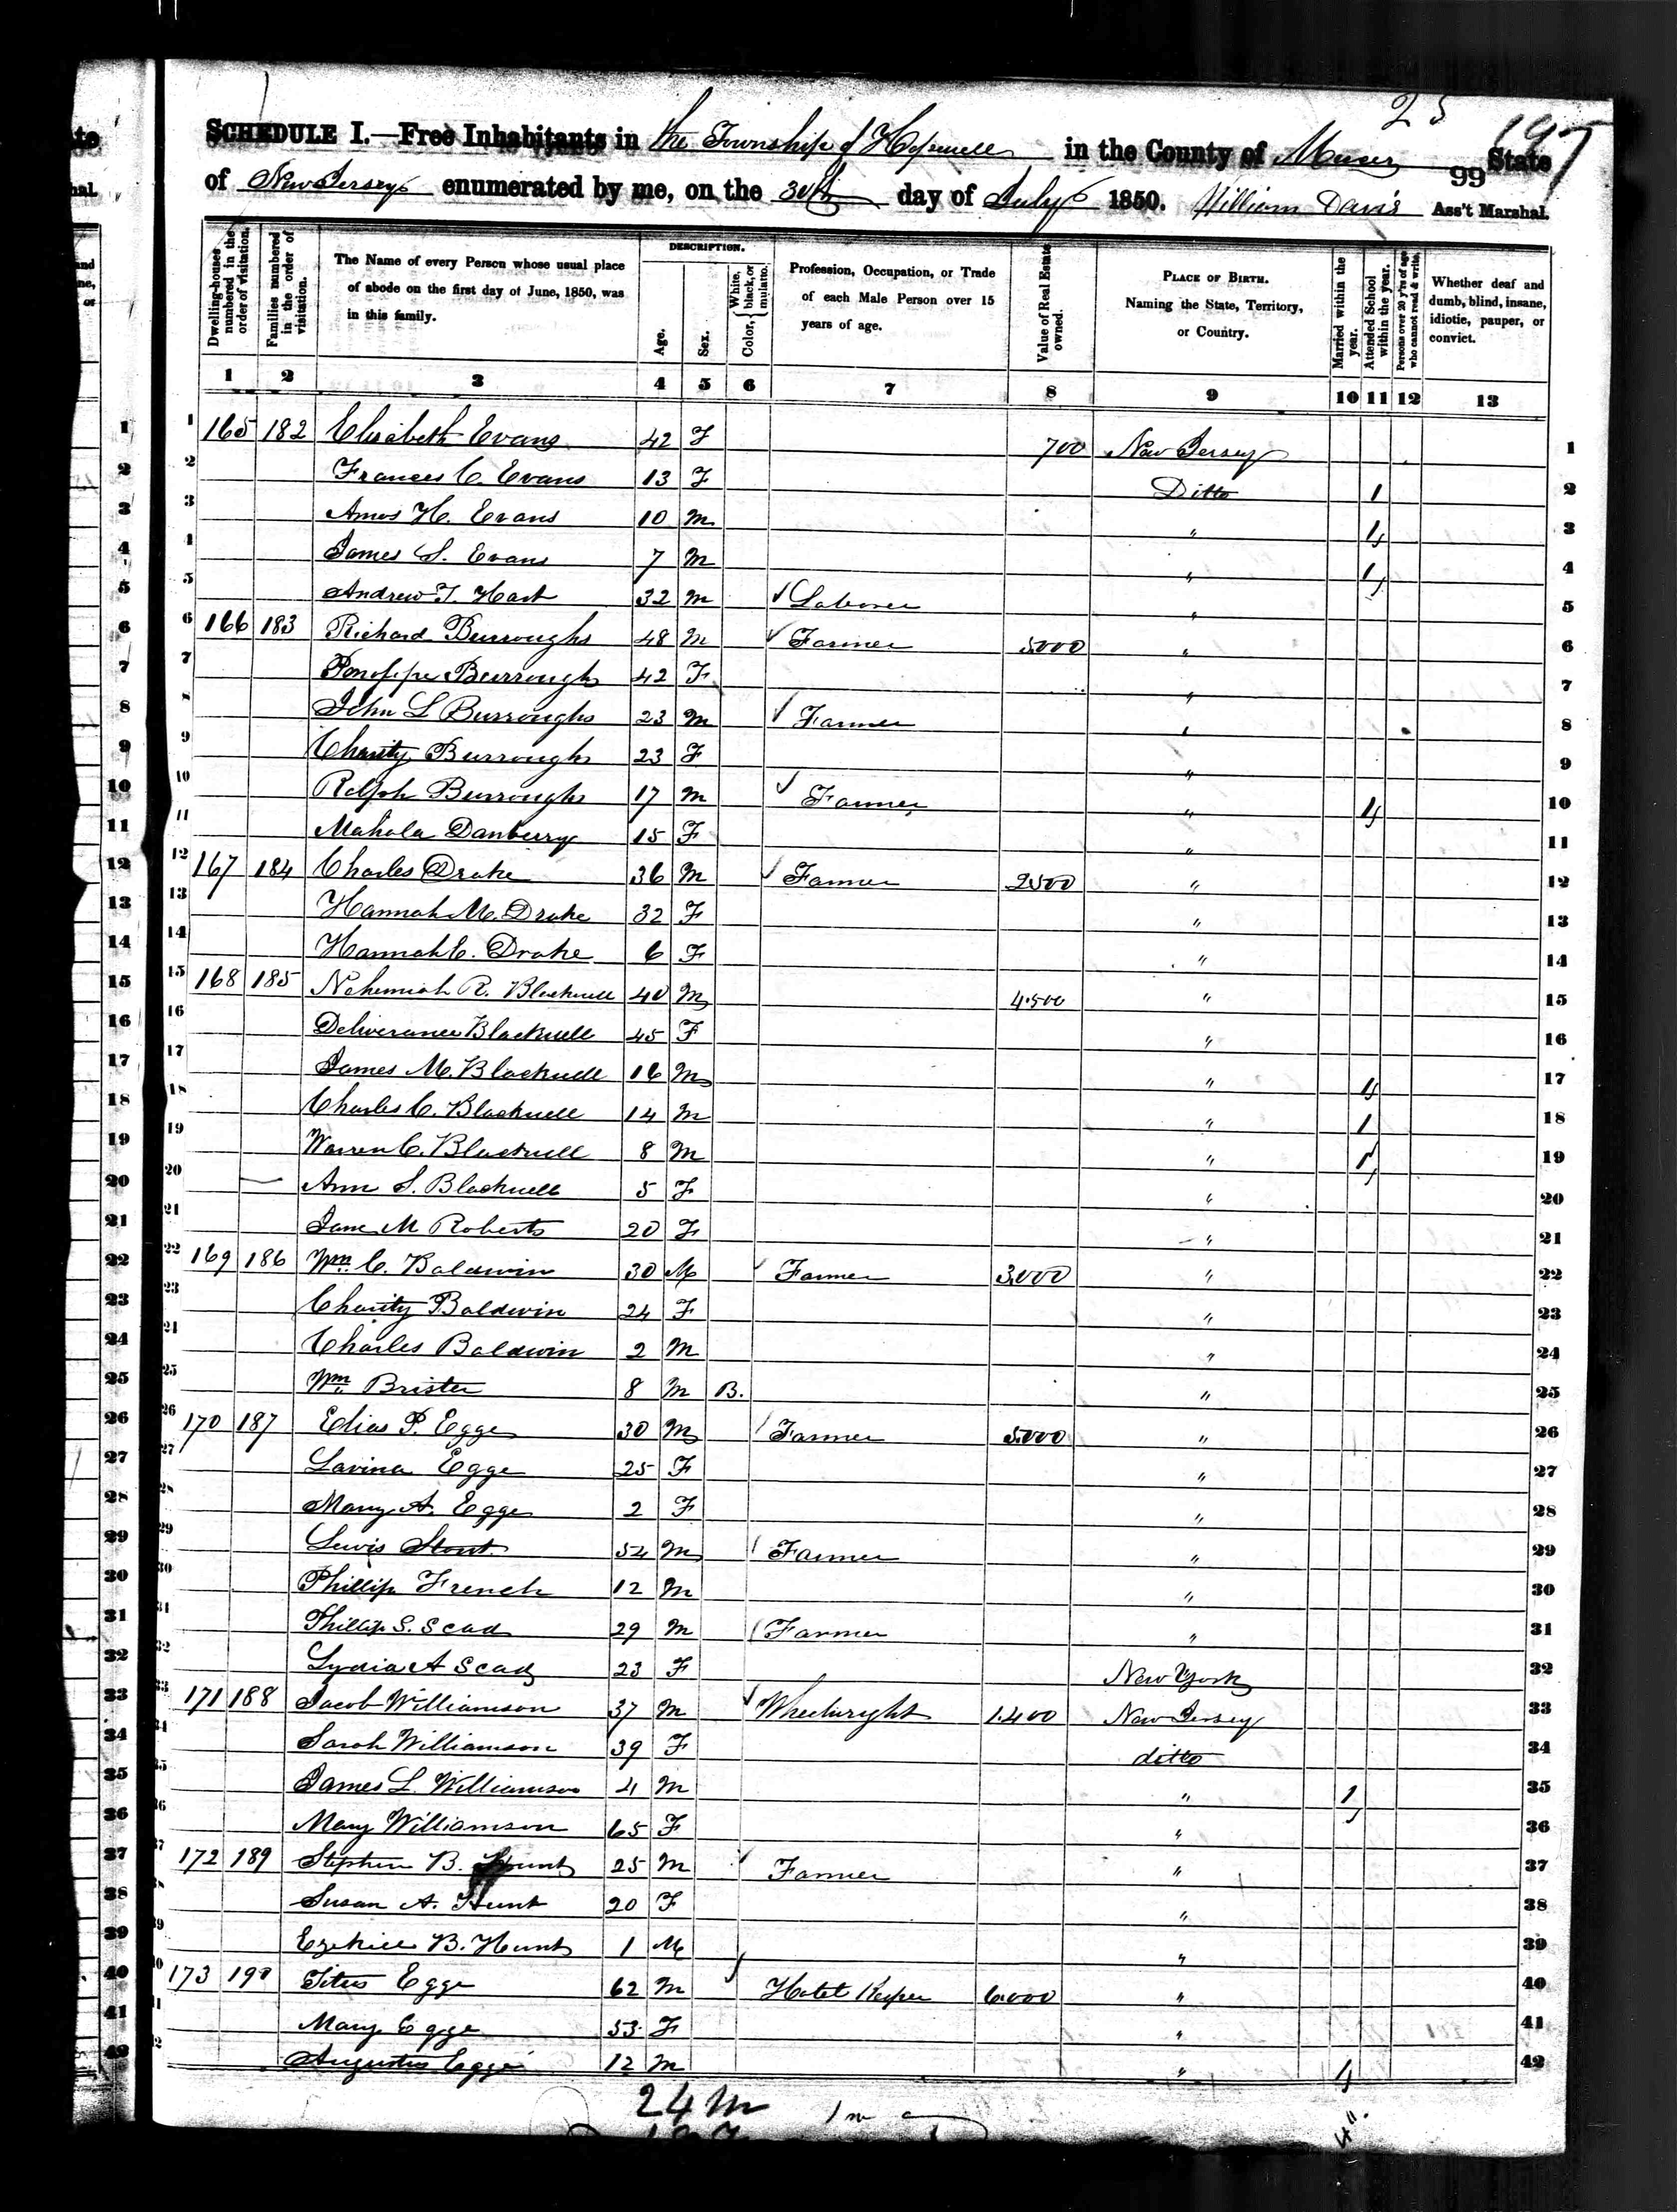 25
197
SCHEDULE I.—Free Inhabitants in the Township of Hopewell in the County of Mercer State
99
of New Jersey enumerated by me, on the 30th day of July 1850. William Davis Ass't Marshal.
Dwelling-houses numbered in the order of visitation.
Families numbered in the order of visitation.
The Name of every Person whose usual place of abode on the first day of June, 1850, was in this family.
DESCRIPTION.
Age.
Sex.
Color, { White, black, or mulatto.
Profession, Occupation, or Trade of each Male Person over 15 years of age.
Value of Real Estate owned.
PLACE OF BIRTH. Naming the State, Territory, or Country.
Married within the year.
Attended School within the year.
Persons over 20 y'rs of age who cannot read & write.
Whether deaf and dumb, blind, insane, idiotic, pauper, or convict.
1 2 3 4 5 6 7 8 9 10 11 12 13
1 165 182 Elisabeth Evans 42 F 700 New Jersey 1
2 Frances C. Evans 13 F Ditto 1 2
3 Amos H. Evans 10 M " 1 3
4 James S. Evans 7 M " 1 4
5 Andrew T. Hart 32 M Laborer " 5
6 166 183 Richard Burroughs 48 M Farmer 5000 " 6
7 Burroughs 42 F " 7
8 John L Burroughs 23 M Farmer " 8
9 Charity Burroughs 23 F " 9
10 Ralph Burroughs 17 M Farmer " 1 10
11 Mahala Danberry 15 F " 11
12 167 184 Charles Drake 36 M Farmer 2500 " 12
13 Hannah M. Drake 32 F " 13
14 Hannah C. Drake 6 F " 14
15 168 185 Nehemiah R. Blackwell 40 M 4500 " 15
16 Deliverance Blackwell 45 F " 16
17 James M. Blackwell 16 M " 1 17
18 Charles C. Blackwell 14 M " 1 18
19 Warren C. Blackwell 8 M " 1 19
20 Ann S. Blackwell 5 F " 20
21 Jane M Roberts 20 F " 21
22 169 186 Wm. C. Baldwin 30 M Farmer 3000 " 22
23 Charity Baldwin 24 F " 23
24 Charles Baldwin 2 M " 24
25 Wm. Brister 8 M B. " 25
26 170 187 Elias P. Egge 30 M Farmer 5000 " 26
27 Lavina Egge 25 F " 27
28 Mary A. Egge 2 F " 28
29 Lewis Stout 54 M Farmer " 29
30 Phillip French 12 M " 30
31 Phillip S. Scad 29 M Farmer " 31
32 Lydia A Scad 23 F New York 32
33 171 188 Jacob Williamson 37 M Wheelwright 1400 New Jersey 33
34 Sarah Williamson 39 F ditto 34
35 James L. Williamson M " 1 35
36 Mary Williamson 65 F " 36
37 172 189 Stephen B. Hunt 25 M Farmer " 37
38 Susan A. Hunt 20 F " 38
39 Ezekiel B. Hunt 1 M " 39
40 173 190 Titus Egge 62 M Hotel Keeper 6000 " 40
41 Mary Egge 53 F " 41
42 Augustus Egge 12 M " 1 42
24 M